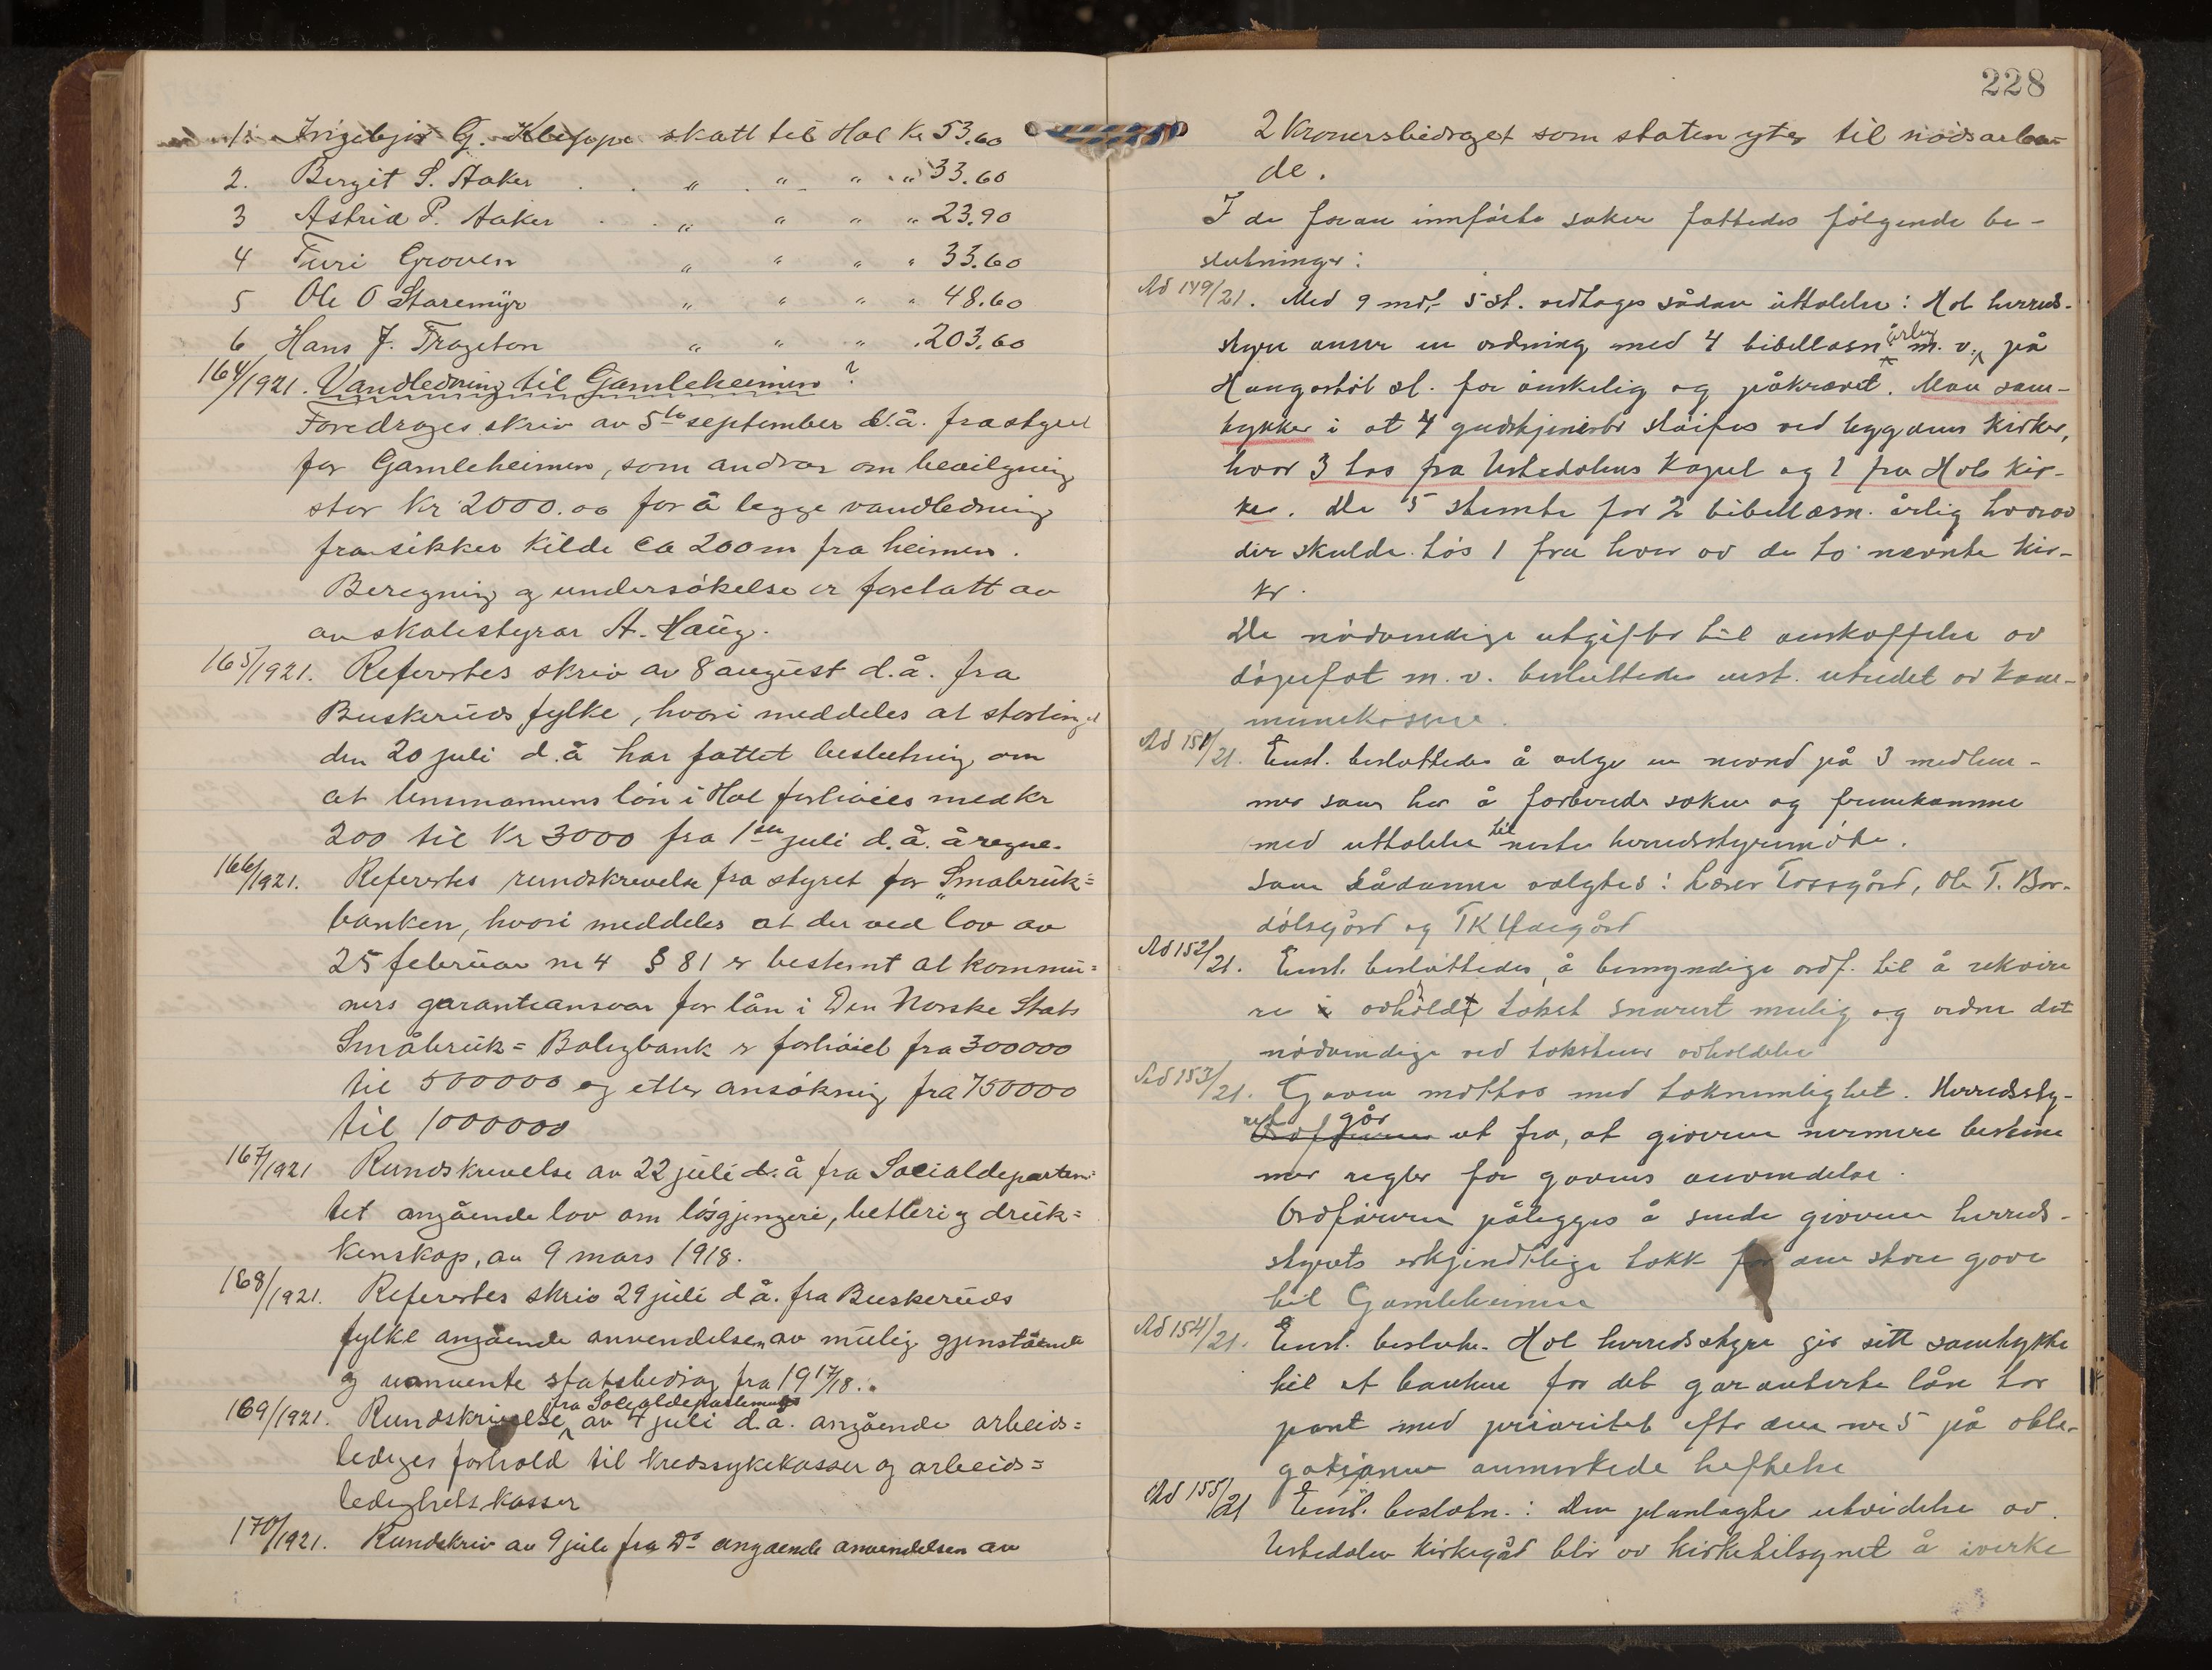 1. Ingebjør G. Kleppe skatt til Hol Kr 53.60
2. Bergit S. Aaker . . " " " " 33.60
3 Astrid P. Aaker . . " " " " 23.90
4 Turi Groven " " " " 33.60
5 Ole O Staremyr " " " " 48.60
6 Hans J. Trageton " " " . 203.60
164/1921. Vandledning til Gamleheimen ?
Foredroges skriv av 5te september d.å. fra styret
for Gamleheimen, som andrar om bevilgning
stor Kr 2000.00 for å legge vandledning
fra sikker kilde ca 200m fra heimen.
Beregning og undersökelse er foretatt av
av skolestyrar A. Haug.
165/1921. Referertes skriv av 8 august d.å. fra
Buskeruds fylke, hvori meddeles at stortinget
den 20 juli d.å har fattet beslutning om
at lensmannens lön i Hol forhöies med kr
200 til Kr 3000 fra 1ste juli d.å. å regne.
166/1921. Referertes rundskrivelse fra styret for "Småbruk=
banken, hvori meddeles at der ved lov av
25 februar nr 4 § 81 er bestemt at kommu=
ners garantiansvar for lån i Den Norske Stats
Småbruk= Boligbank er forhöiet fra 300000
til 500000 og etter ansökning fra 750000
til 1000000
167/1921 Rundskrivelse av 22 juli d.å fra Socialdepartem=
tet angående lov om lösgjengeri, betleri og druk=
kenskap, av 9 mars 1918.
168/1921. Referertes skriv 29 juli d å. fra Buskeruds
fylke angående anvendelsen av mulig gjenstående
og uanvente statsbidrag fra 1917/18..
fra Socialdepartementet
169/1921. Rundskrivelse av 4 juli d.å. angående arbeids=
lediges forhold til kredssykekasser og arbeids=
ledighets kasser
170/1921. Rundskriv av 9 juli fra Do angaende anvendelsen av
228
2 Kronersbidraget som staten yter til nödsarbei-
de.
I de foran innförte saker fattedes fölgende be-
slutninger:
Ad 149/21. Med 9 mot 5 st. vedtoges sådan uttalelse: Hol herreds-
styre anser en ordning med 4 bibellæsn. årleg m. v. på
Haugastöl st. for önskelig og påkrævet. Man sam-
tykker i at 4 gudstjenester slöifes ved bygdens kirker,
hvor 3 tas fra Ustedalens kapel og 1 fra Hols kir-
ke. De 5 stemte for 2 bibellæsn. årlig hvorav
der skulde tas 1 fra hver av de to nævnte kir-
ker.
De nödvendige utgifter til anskaffelse av
döpefat m. v. besluttedes enst. utredet av kom-
munekassen.
Ad 151/21. Enst. besluttedes å velge en nevnd på 3 medlem-
mer som har å forberede saken og fremkomme
med uttalelse til neste herredsstyremöte.
Som sådanne valgtes: Lærer Tossgård, Ole T. Bar-
dölsgård og TK Udegård
Ad 152/21. Enst. besluttedes å bemyndige ordf. til å rekvire
re avholdt takst snarest mulig og ordne det
nödvendige ved takstens avholdelse
Ad 153/21. Gaven mottas med taknemlighet. Herredssty-
ret går ut fra, at giveren nærmere bestem
mer regler for gavens anvendelse.
Ordföreren pålegges å sende giveren herreds-
styrets erkjendtlige takk for den store gave
til Gamleheimen
Ad 154/21. Enst. beslutn. Hol herredsstyre gir sitt samtykke
til at banken for det garanterte lån tar
pant med prioritet efter den nr 5 på obli-
gasjonen anmerkede heftelse
Ad 155/21 Enst. beslutn.: Den planlagte utvidelse av
Ustedalen kirkegård blir av kirketilsynet å iverke